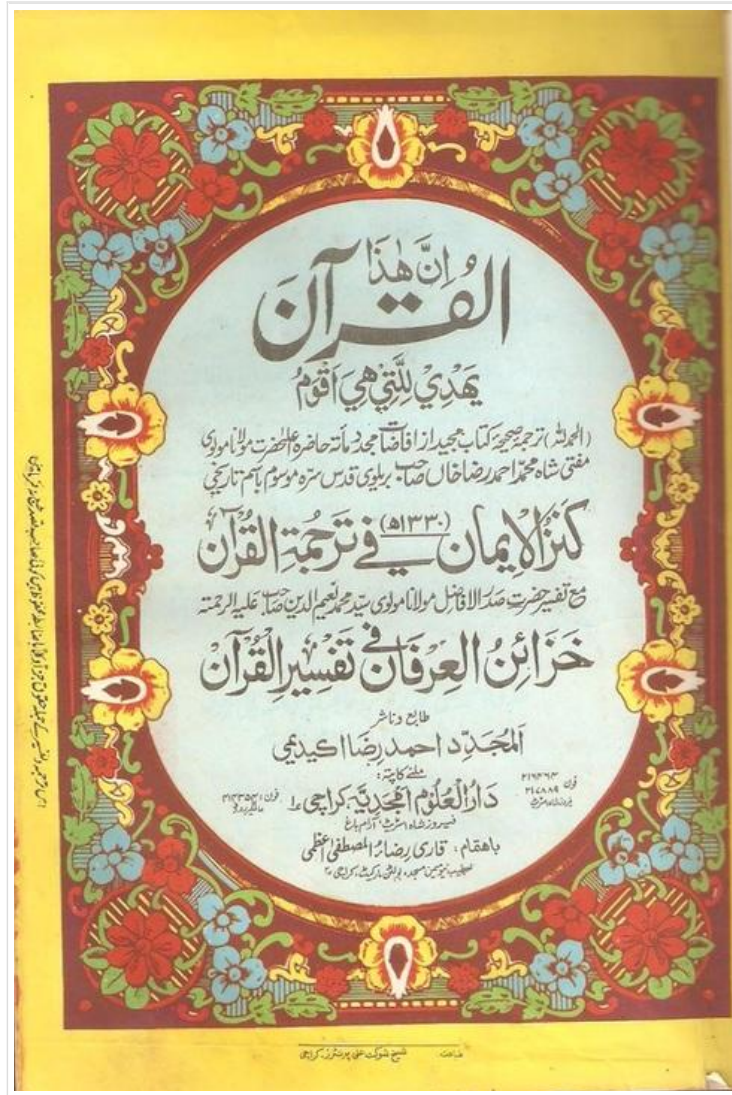 اِنَّ هٰذَا
القُرآنَ
يَهْدِيْ لِلَّتِيْ هِيَ اَقْوَمُ
(الحمدللہ) ترجمۂ صحیحہ کتاب مجید از افاضات مجدد مأتہ حاضرہ اعلٰحضرت مولانا مولوی
مفتی شاہ محمد احمد رضا خاں صاحب بریلوی قدس سرہ موسوم باسم تاریخی
کنزُ الاِیمان (۱۳۳۰ھ) فی ترجمۃِ القُرآن
مع تفیر حضرت صدر الافاضل مولانا مولوی سید محمد نعیم الدین صاحب علیہ الرحمتہ
خَزائِنُ العِرفَان فی تَفسِیرِ القُرآن
طابع و ناشر
المجدّد احمد رضا اکیڈیمی
ملنے کا پتہ:
دارُالعلوم امجدیہ کراچی ۵
فون ۲۱۶۴۶۴
۲۱۷۸۸۹
فیروز شاہ اسٹریٹ آرام باغ
باہتمام: قاری رضاءُ المصطفیٰ اعظمی
خطیب نیو میمن مسجد، بولٹن مارکیٹ، کراچی ۲
شیخ شوکت علی پرنٹرز، کراچی